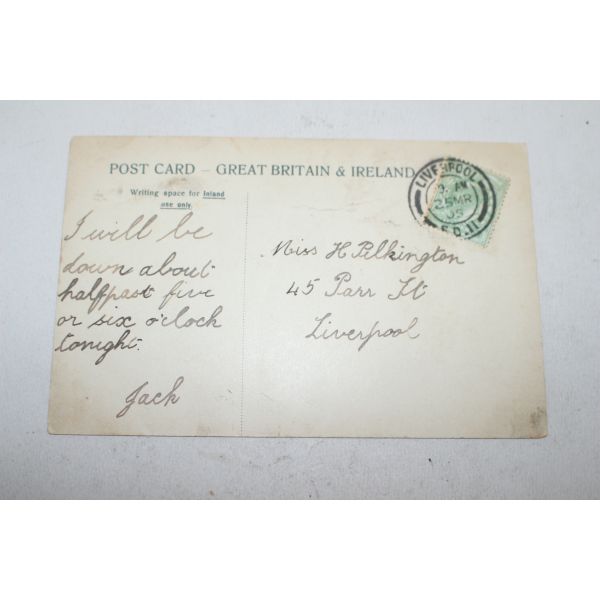 POST CARD – GREAT BRITAIN & IRELAND
Writing space for Inland
use only.
I will be
down about
halfpast five
or six o'clock
tonight.
Jack
Miss H Pilkington
45 Parr St
Liverpool
LIVERPOOL
AM
25 MR
05